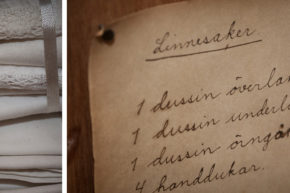 Linnesaker
1 dussin överlak
1 dussin underl
1 dussin örngå
4 handdukar.